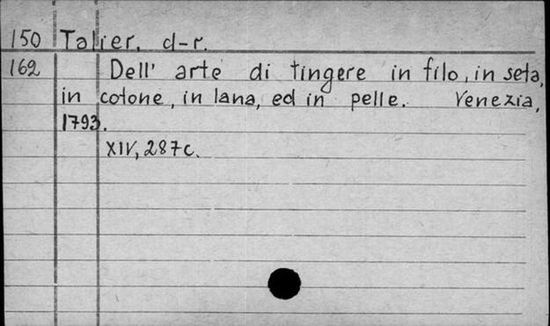 150 Talier, d-r.
162 Dell' arte di tingere in filo, in seta,
in cotone, in lana, ed in pelle. Venezia,
1793.
XIV, 287c.